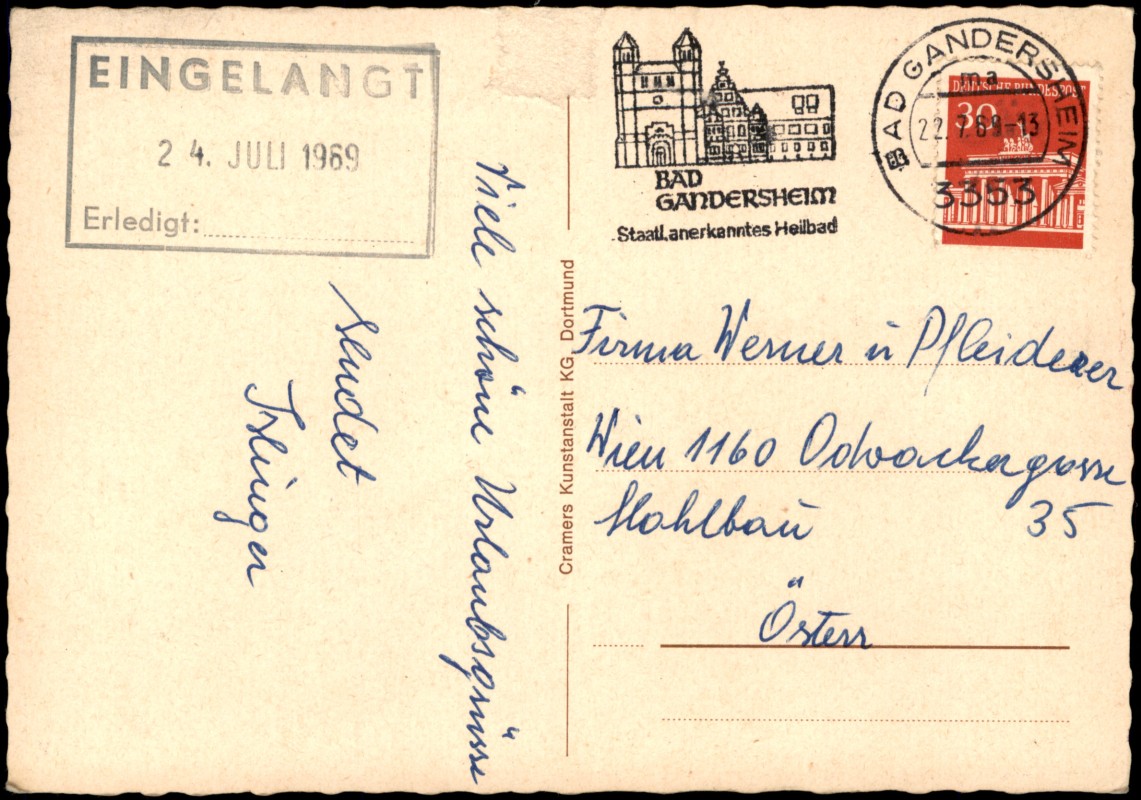 EINGELANGT
24. JULI 1969
Erledigt:
Viele schöne Urlaubsgrüsse
sendet
BAD
GANDERSHEIM
Staatl. anerkanntes Heilbad
BAD GANDERSHEIM
ma
22.7.69-13
3353
DEUTSCHE BUNDESPOST
30
Cramers Kunstanstalt KG, Dortmund
Firma Werner u Pfleiderer
Wien 1160 Odoackergasse
Stahlbau 35
Österr